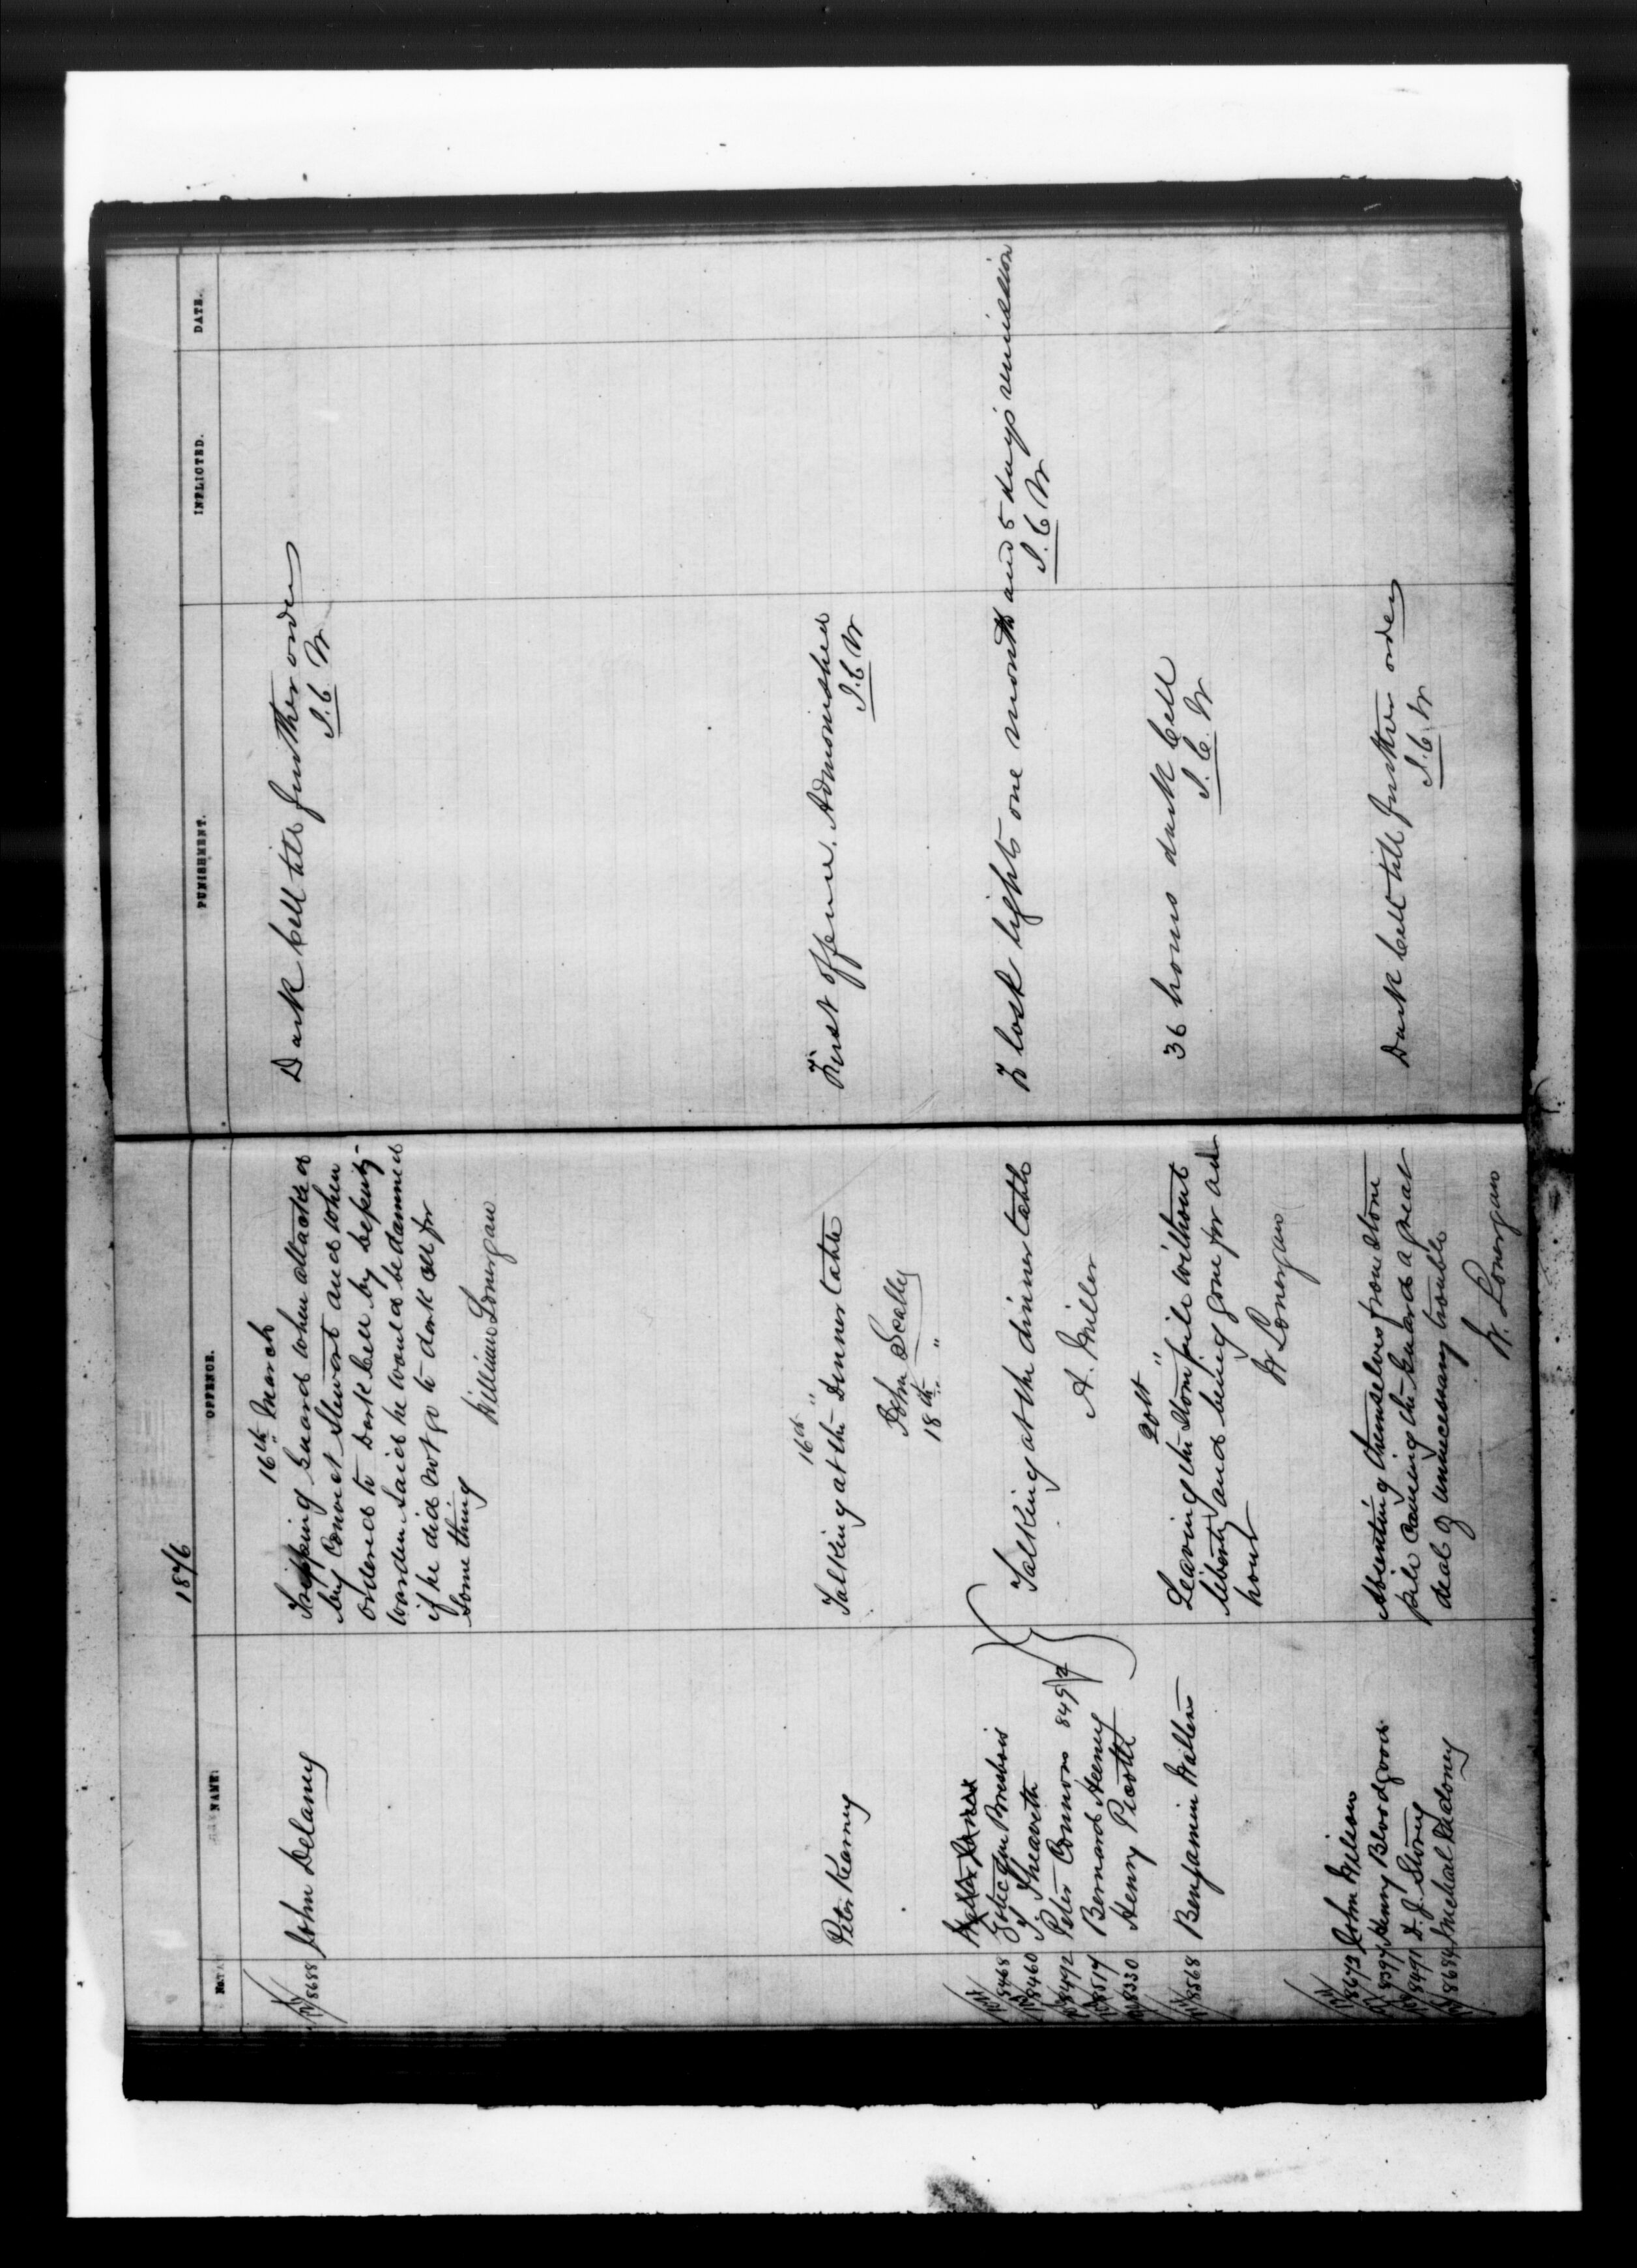 1876
No.
NAME.
OFFENCE.
PUNISHMENT.
INFLICTED.
DATE.
16th March
8688 John Delaney
Tripping Guard when attacked
by Convict Stewart and when
ordered to Dark Cell by Deputy
warden said he would be damned
if he did not go to dark cell for
some thing
William Lonergan
Dark Cell till further order
J. C. W
16th "
Peter Kearney
Talking at the Dinner table
John Scally
First offence. Admonished
J. C. W
18th "
8468
8460
8492 Peter Connors 8492
8517 Bernard Heeney
8330 Henry
Talking at the dinner table
A. Miller
To lose lights one month and 5 days remission
J. C. W
20th "
8568 Benjamin Walters
Leaving the Stone pile without
liberty and being gone for an
hour
W Lonergan
36 hours dark Cell
J. C. W
8673 John Wilson
8397 Henry Bloodgood
8491 D. J. Storey
8684 Micheal
Absenting themselves from stone
pile causing the Guard a great
deal of unnecessary trouble
W. Lonergan
Dark Cell till further order
J. C. W